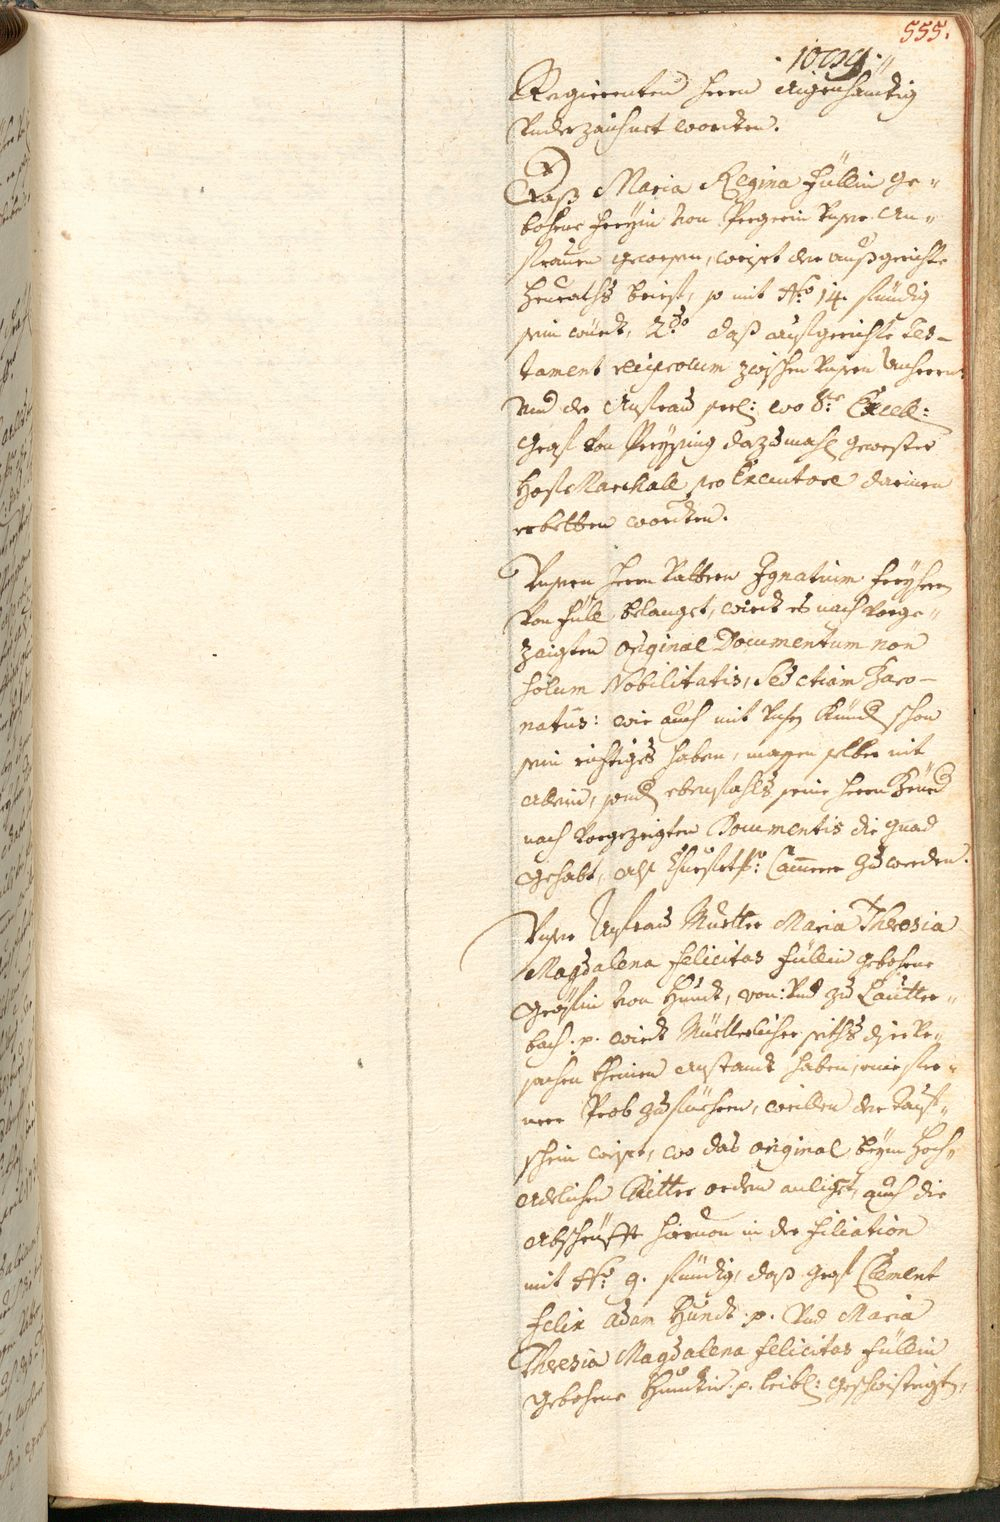 555.
1009.
Regierenten Herrn aigenhändig
Underzaichnet worden.
Daß Maria Regina Füllin ge-
bohrne Freyin von Pergerin Unser An-
frauen gewesen, weiset der aufgerichte
Heuraths brief, so mit No 14. fündig
sein würdt, 2do daß aufgerichte Tes-
tament reciprocum zwischen Unsern Anherrn
Und der Anfrau seel: wo Sr. Excell:
Graf von Preysing dazumahl gewester
Hof Marchall pro Executore darinen
erbetten worden.
Unsern Herrn Vattern Ignatium Freyherrn
von Füll belanget, wirdt es nach vorge-
zaigten original Documentum non
solum Nobilitatis, sed etiam Baro-
natus: wie auch mit Uhr Kündt schon
sein richtiges haben, massen selber nit
allein, sondern ebenfahls seine Herrn Brüed
nach vorgezeigten Documentis die gnad
gehabt, als Churfrtl: Cammerer zu werden.
Unser Anfrau Muetter Maria Theresia
Magdalena Felicitas Füllin gebohrne
Gräfin von Hundt, von: und zu Lautter-
bach: p. wirdt Müetterlicher seiths dise Ur-
sachen kheinen anstandt haben, eine fer-
nere Prob zu füehren, weillen der Tauf-
schein weiset, wo das original beym Hoch-
adelichen Ritter orden anliget, auch die
Abschrüfft hievon in der Filiation
mit No 9. fündig, daß Graf Clement
Felix Adam Hundt: p. Und Maria
Theresia Magdalena Felicitas Füllin
gebohrne Hundtin: p. leibl: geschwistrigt,